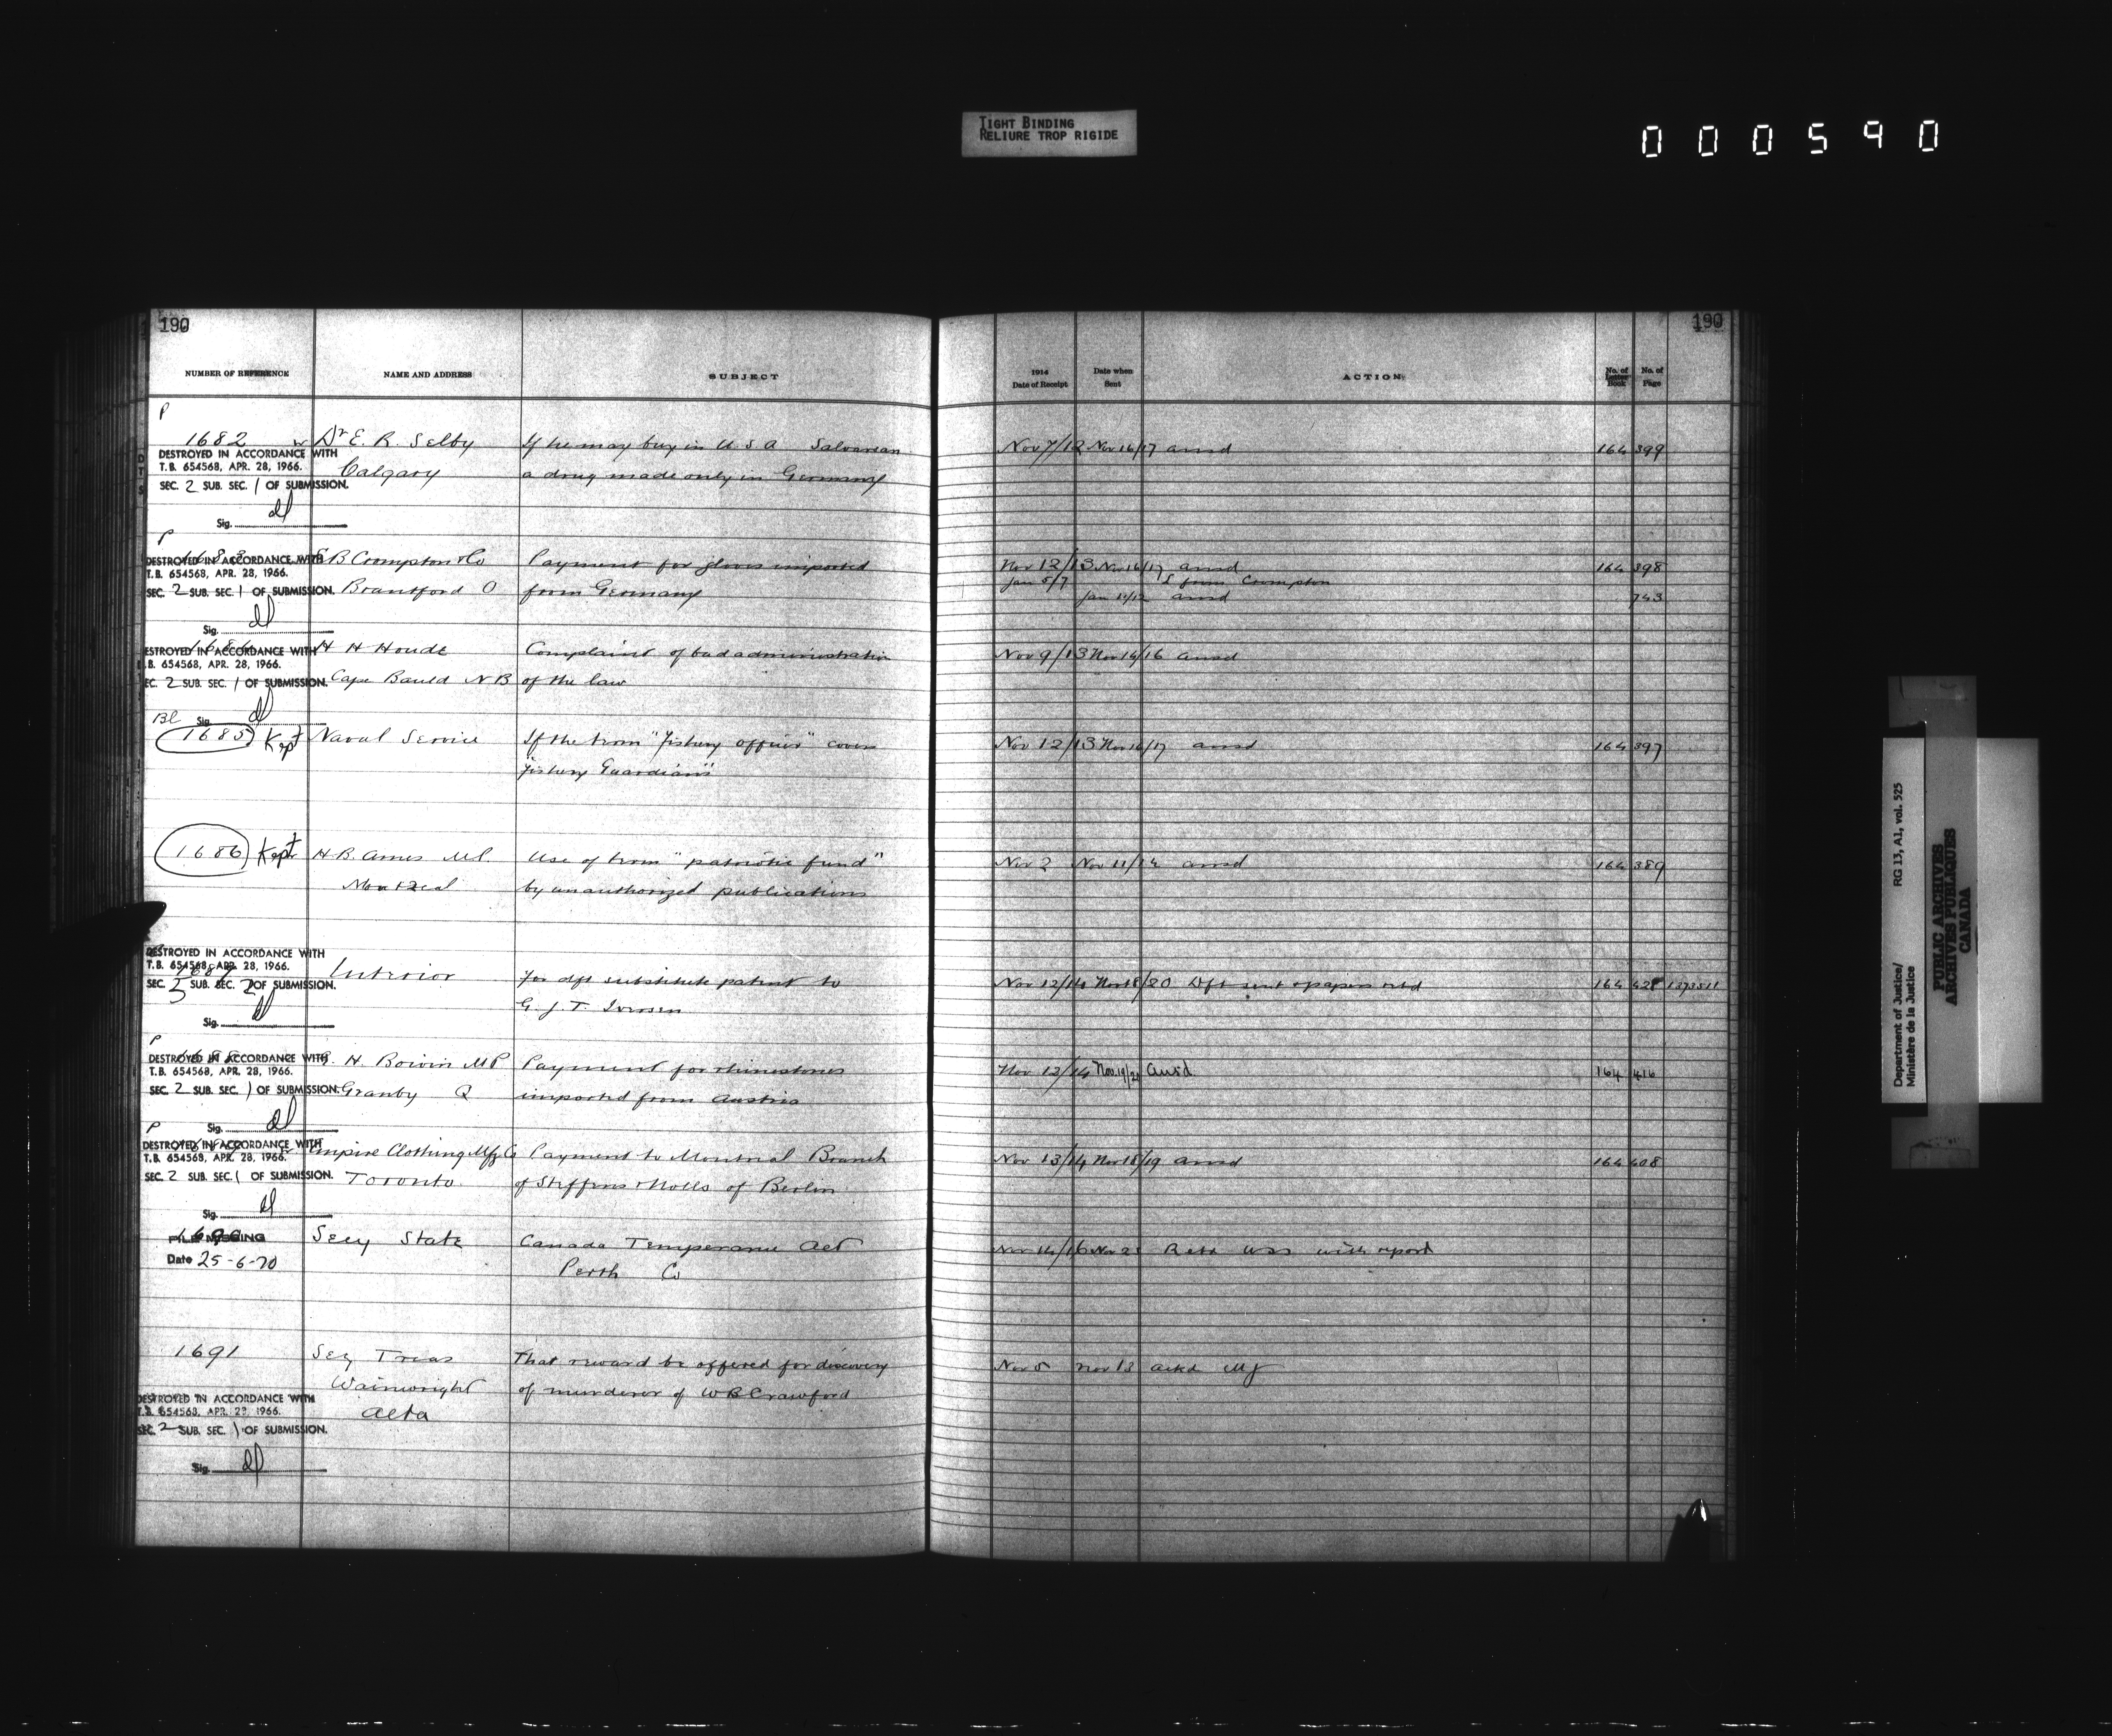 TIGHT BINDING
RELIURE TROP RIGIDE
000590
190
190
NUMBER OF REFERENCE NAME AND ADDRESS SUBJECT 1914 Date of Receipt Date when Sent ACTION No. of Letter Book No. of Page
P
1682 Dr E. R. Selby If he may buy in U S A Salvarsan Nov 7/12 Nov 16/17 ansd 164 399
DESTROYED IN ACCORDANCE WITH
T.B. 654568, APR. 28, 1966.
Calgary a drug made only in Germany
SEC. 2 SUB. SEC. 1 OF SUBMISSION.
Sig.
P
1683 B Crompton & Co Payment for gloves imported Nov 12/13 Nov 16/17 ansd 164 398
DESTROYED IN ACCORDANCE WITH
T.B. 654568, APR. 28, 1966.
Jan 5/7 L from Crompton
SEC. 2 SUB. SEC. 1 OF SUBMISSION. Brantford O from Germany Jan 11/12 ansd 743
Sig.
H H Houde Complaint of bad administration Nov 9/13 Nov 14/16 ansd
DESTROYED IN ACCORDANCE WITH
T.B. 654568, APR. 28, 1966.
SEC. 2 SUB. SEC. 1 OF SUBMISSION. Cape Bauld N B of the law
Sig.
Bl
1685 Kept Naval Service If the term "fishery officer" covers Nov 12/13 Nov 16/17 ansd 164 397
"fishery Guardians"
1686 Kept H. B. Ames M.P. Use of term "patriotic fund" Nov 2 Nov 11/14 ansd 164 389
Montreal by unauthorized publications
DESTROYED IN ACCORDANCE WITH
T.B. 654568, APR. 28, 1966.
1687 Interior For dft substitute patent to Nov 12/14 Nov 18/20 Dft sent & papers retd 164
SEC. 5 SUB. SEC. 2 OF SUBMISSION.
G. J. T. Iverson
Sig.
P
H. Boivin MP Payment for rhinestones Nov 12/14 Nov. 19/20 Ansd 164 416
DESTROYED IN ACCORDANCE WITH
T.B. 654568, APR. 28, 1966.
SEC. 2 SUB. SEC. 1 OF SUBMISSION. Granby Q imported from Austria
Sig.
P
Empire Clothing Mfg Co Payment to Montreal Branch Nov 13/14 Nov 18/19 ansd 164 408
DESTROYED IN ACCORDANCE WITH
T.B. 654568, APR. 28, 1966.
SEC. 2 SUB. SEC. 1 OF SUBMISSION. Toronto of Steffens & Nolls of Berlin
Sig.
1690 Secy State Canada Temperance Act Nov 14/16 Nov 23 with report
FILE MISSING
Date 25-6-70 Perth Co
1691 Sec Treas That reward be offered for discovery Nov 5 Nov 13 ackd MJ
Wainwright of murderer of W B Crawford
Alta
DESTROYED IN ACCORDANCE WITH
T.B. 654568, APR. 28, 1966.
SEC. 2 SUB. SEC. 1 OF SUBMISSION.
Sig.
Department of Justice/ RG 13, A1, vol. 525
Ministère de la Justice
PUBLIC ARCHIVES
ARCHIVES PUBLIQUES
CANADA